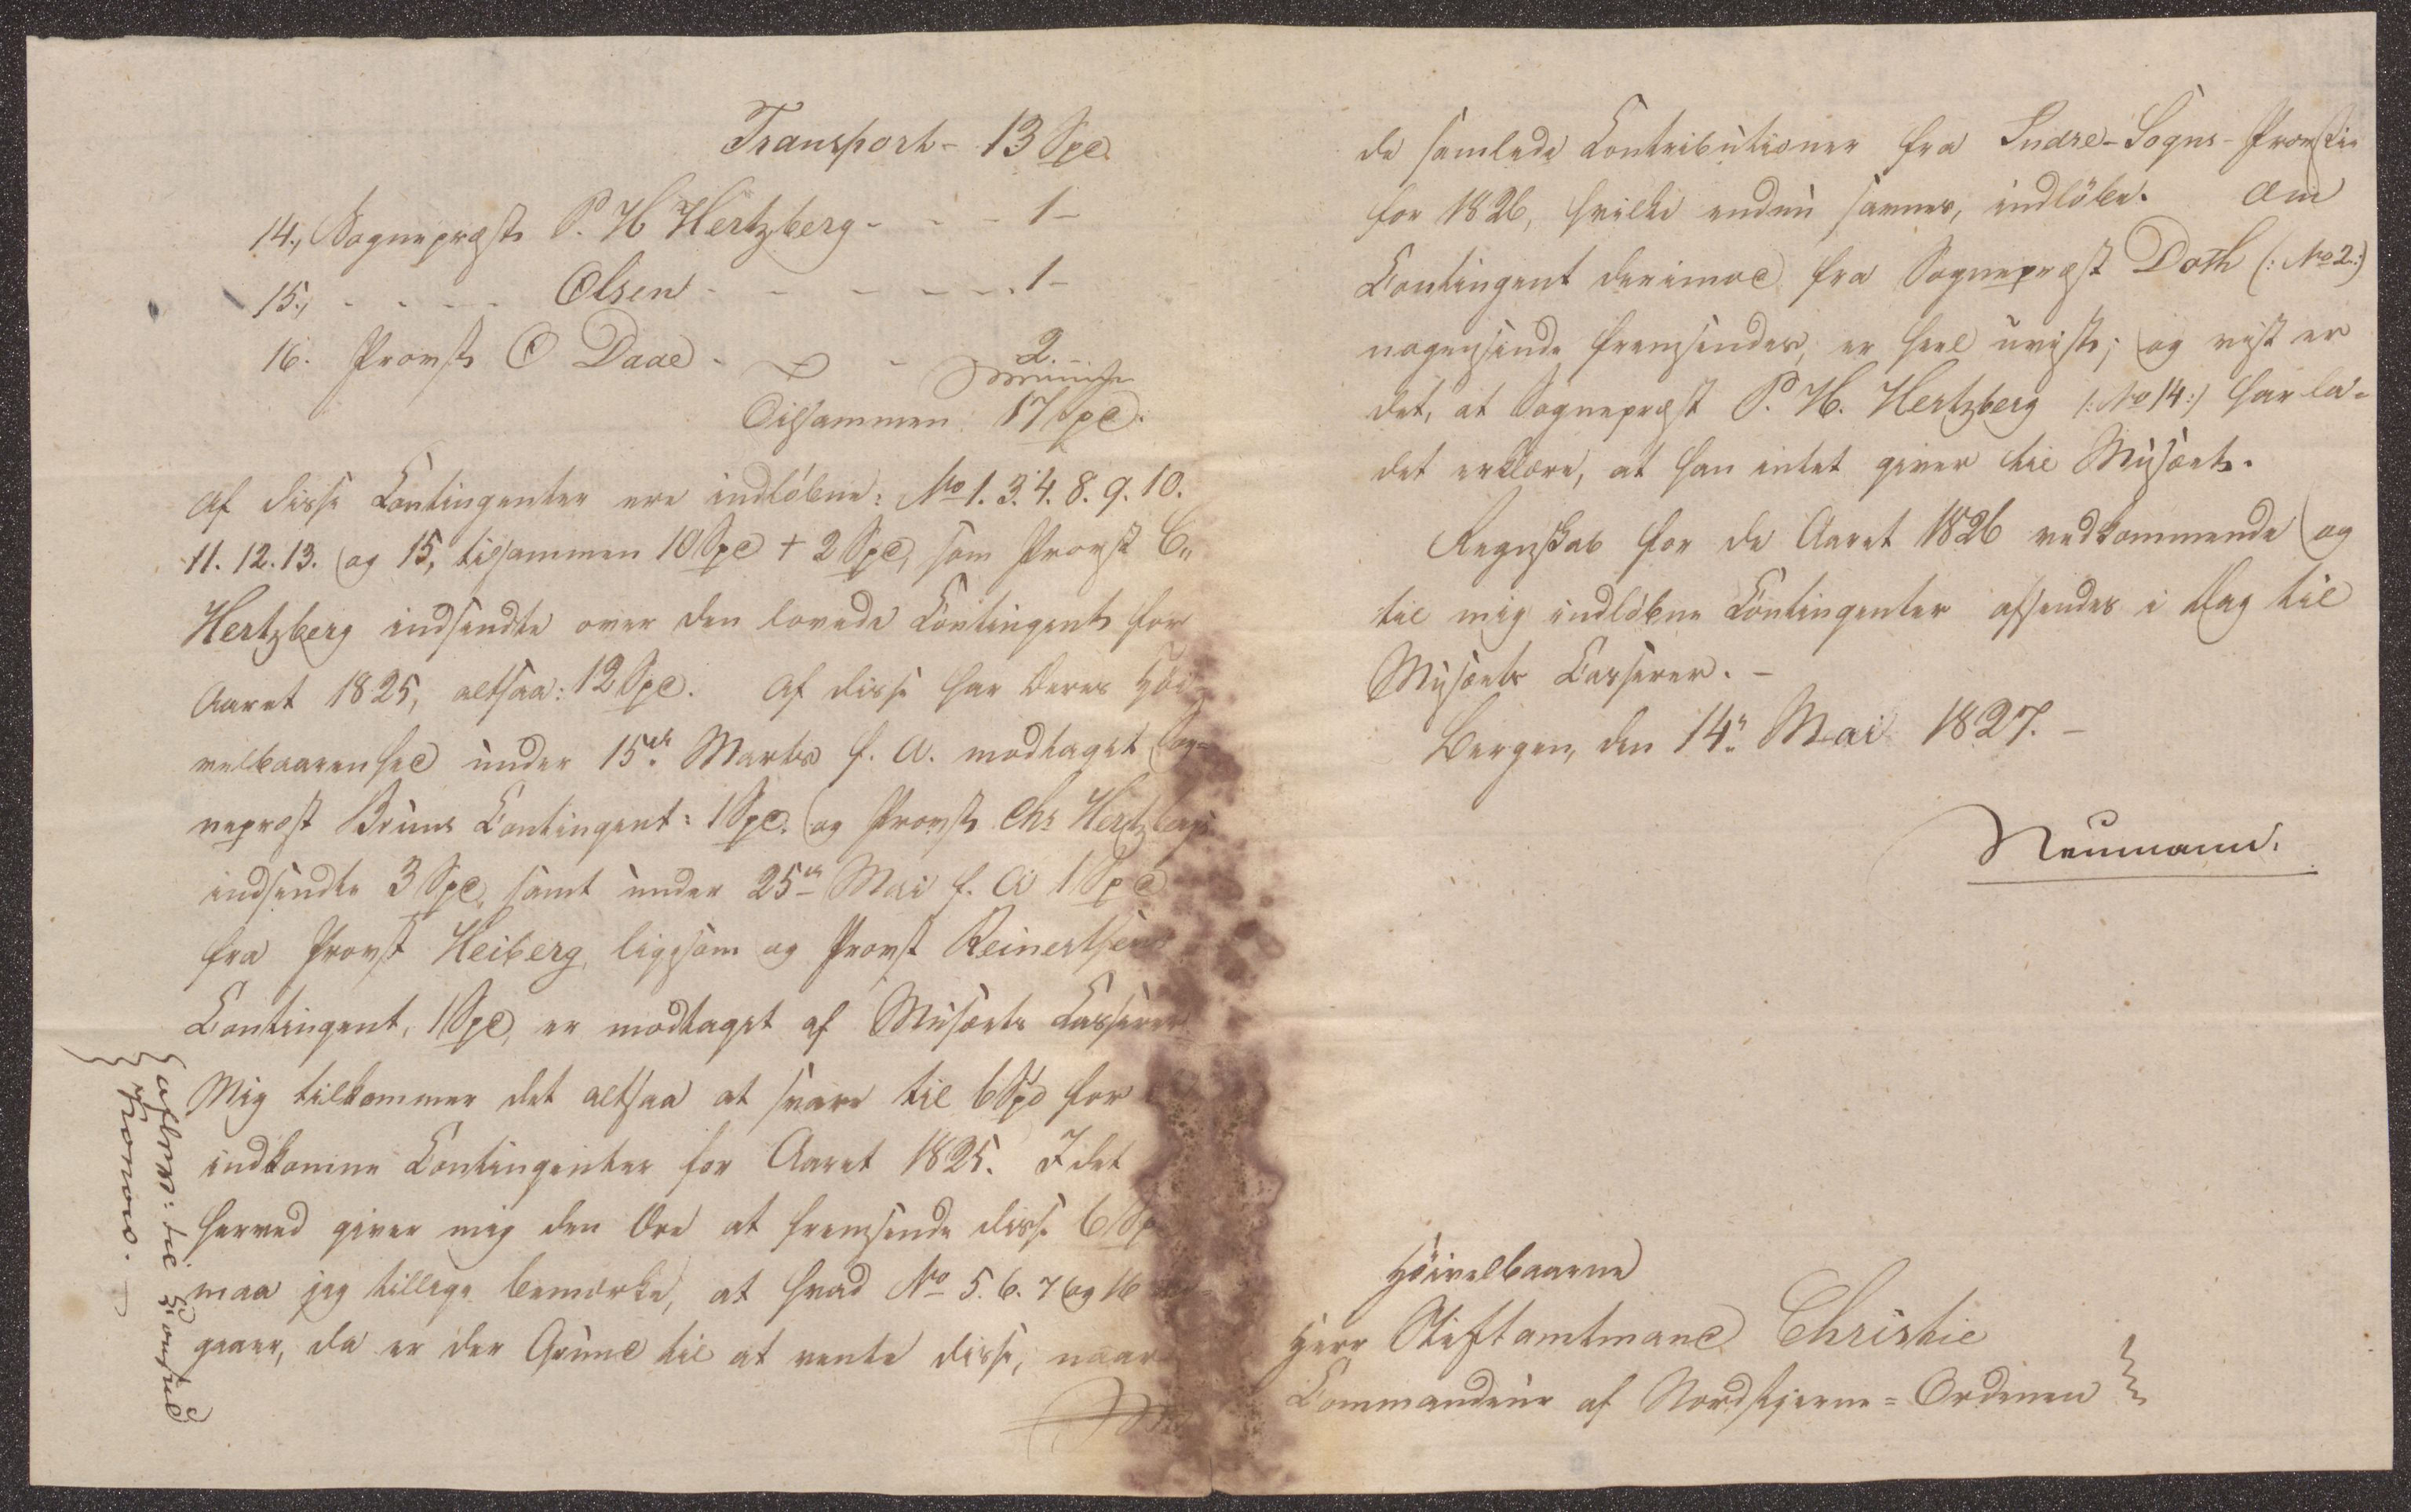 Transport - 13 Spd.
14., Sognepræst P. H Hertzberg - - - 1 -
15., - - - - Olsen - - - - - - 1 -
16. Provst O Daae - - - 2. -
Tilsammen 17 Spd.
Af disse Contingenter ere indløbne: No 1. 3. 4. 8. 9. 10.
11. 12. 13. og 15, tilsammen 10 Spd + 2 Spd, som Provst C,,
Hertzberg indsendte over den lovede Contingent for
Aaret 1825, altsaa: 12 Spd. Af disse har Deres Høi-
velbaarenhed under 15de Martis f. A. modtaget Sog-
nepræst Bruns Contingent: 1 Spd. og Provst Chr Hertzberg
indsendte 3 Spd, samt under 25de Mai f. A 1 Spd
fra Provst Heiberg, ligesom og Provst Reinertsens
Contingent, 1 Spd, er modtaget af Musæets Casserer
Mig tilkommer det altsaa at svare til 6 Spd for
indkomne Contingenter for Aaret 1825. I det
herved giver mig den Ære at fremsende disse 6 Sp
maa jeg tillige bemærke, at hvad No 5. 6. 7 og 16
gaaer, da er der Grund til at vente disse, naar
afleve: til Consul
Konow. -
de samlede Contributioner fra Indre-Sogns-Provstie
for 1826, hvilke endnu savnes, indløbe. Om
Contingent derimod fra Sognepræst Doth (: No 2:)
nogensinde fremsendes, er heel uvist; og vist er
det, at Sognepræst P. H. Hertzberg (: No 14:) har la-
det erklære, at han intet giver til Musæet.
Regnskab for de Aaret 1826 vedkommende og
til mig indløbne Contingenter afsendes i Dag til
Musæets Casserer. -
Bergen, den 14: Mai 1827. -
Neumann.
Høivelbaarne
Herr Stiftamtmand Christie
Commandeur af Nordstjerne-Ordenen